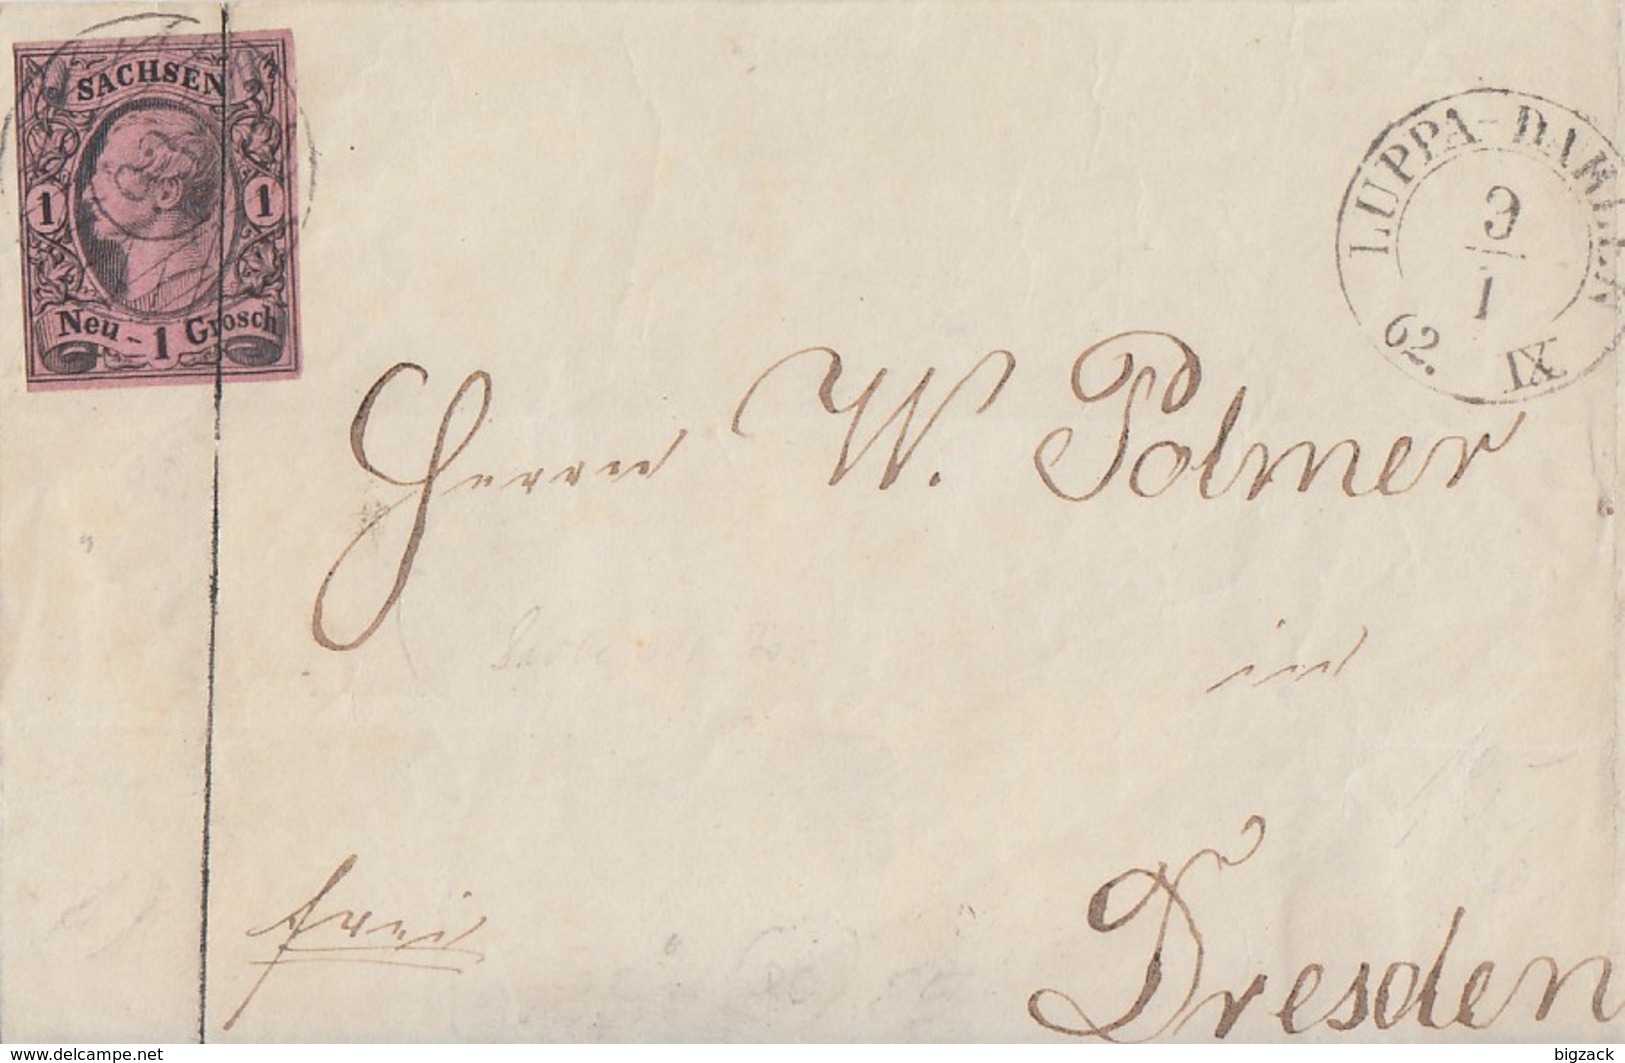 SACHSEN
1 1
Neu - 1 Grosch
LUPPA-DAHLEN
9
I
62. IX
Herrn W. Polmer
in
Dresden
frei
www.delcampe.net
bigzack